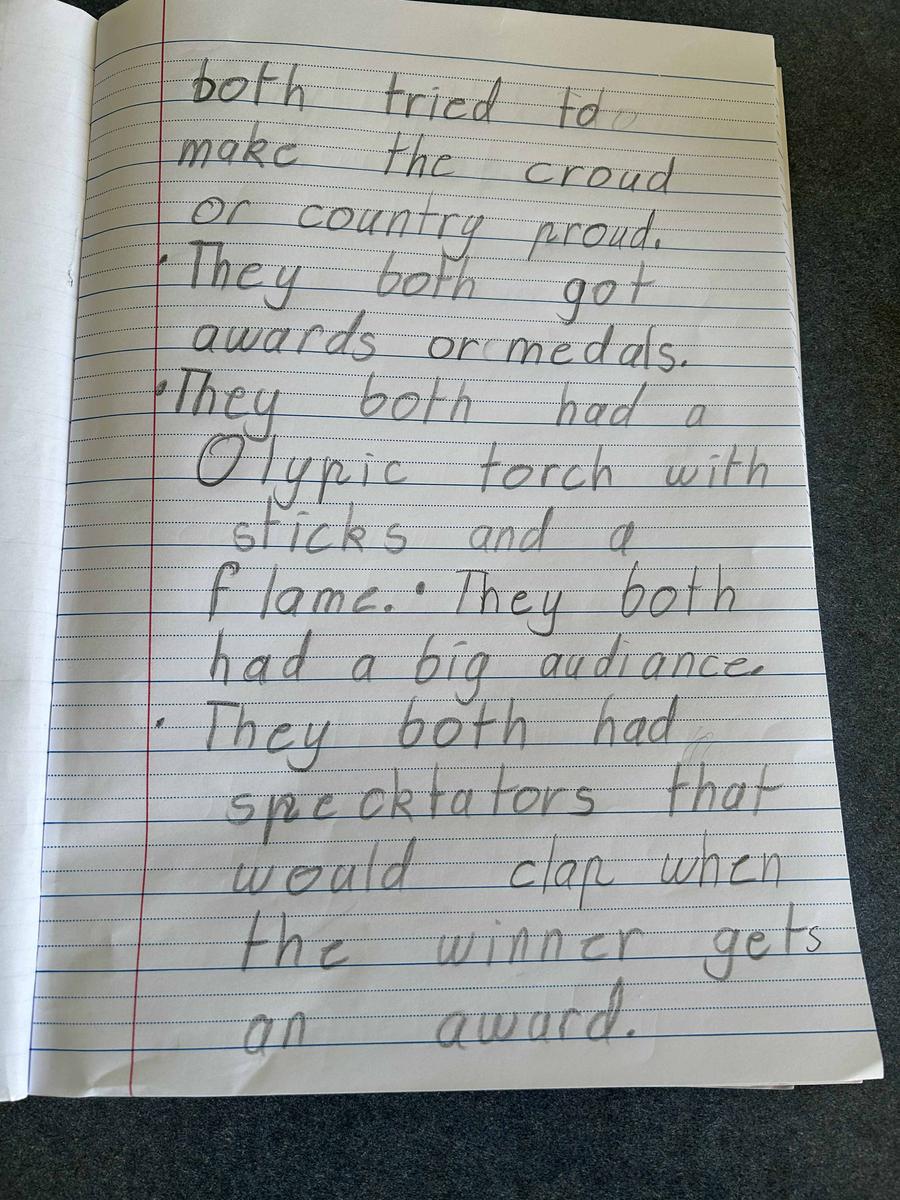 both tried to
make the croud
or country proud.
• They both got
awards or medals.
• They both had a
Olypic torch with
sticks and a
flame. • They both
had a big audiance.
• They both had
specktators that
would clap when
the winner gets
an award.